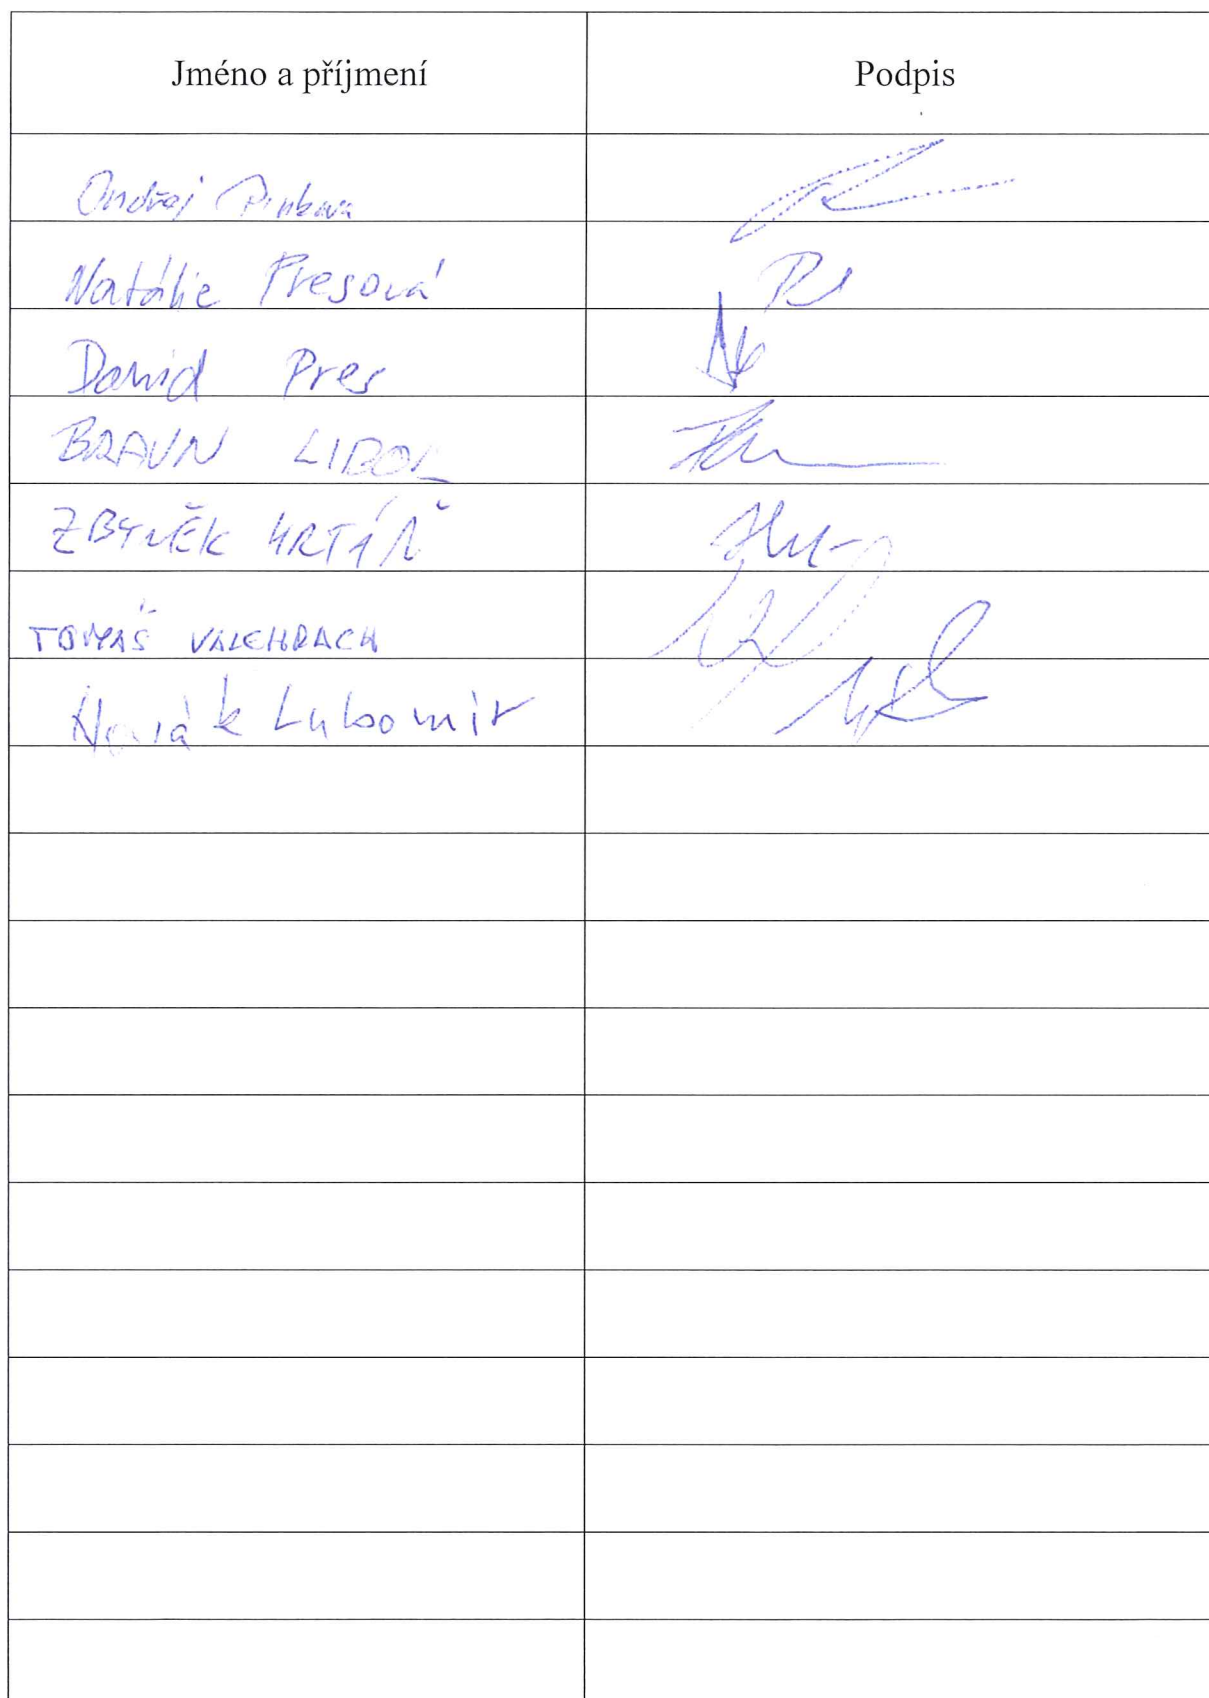 Jméno a příjmení Podpis
Ondřej
Natálie Presová
David Pres
BRAUN LIBOR
ZBYNĚK
TOMÁŠ VALEHRACH
Novák Lubomír